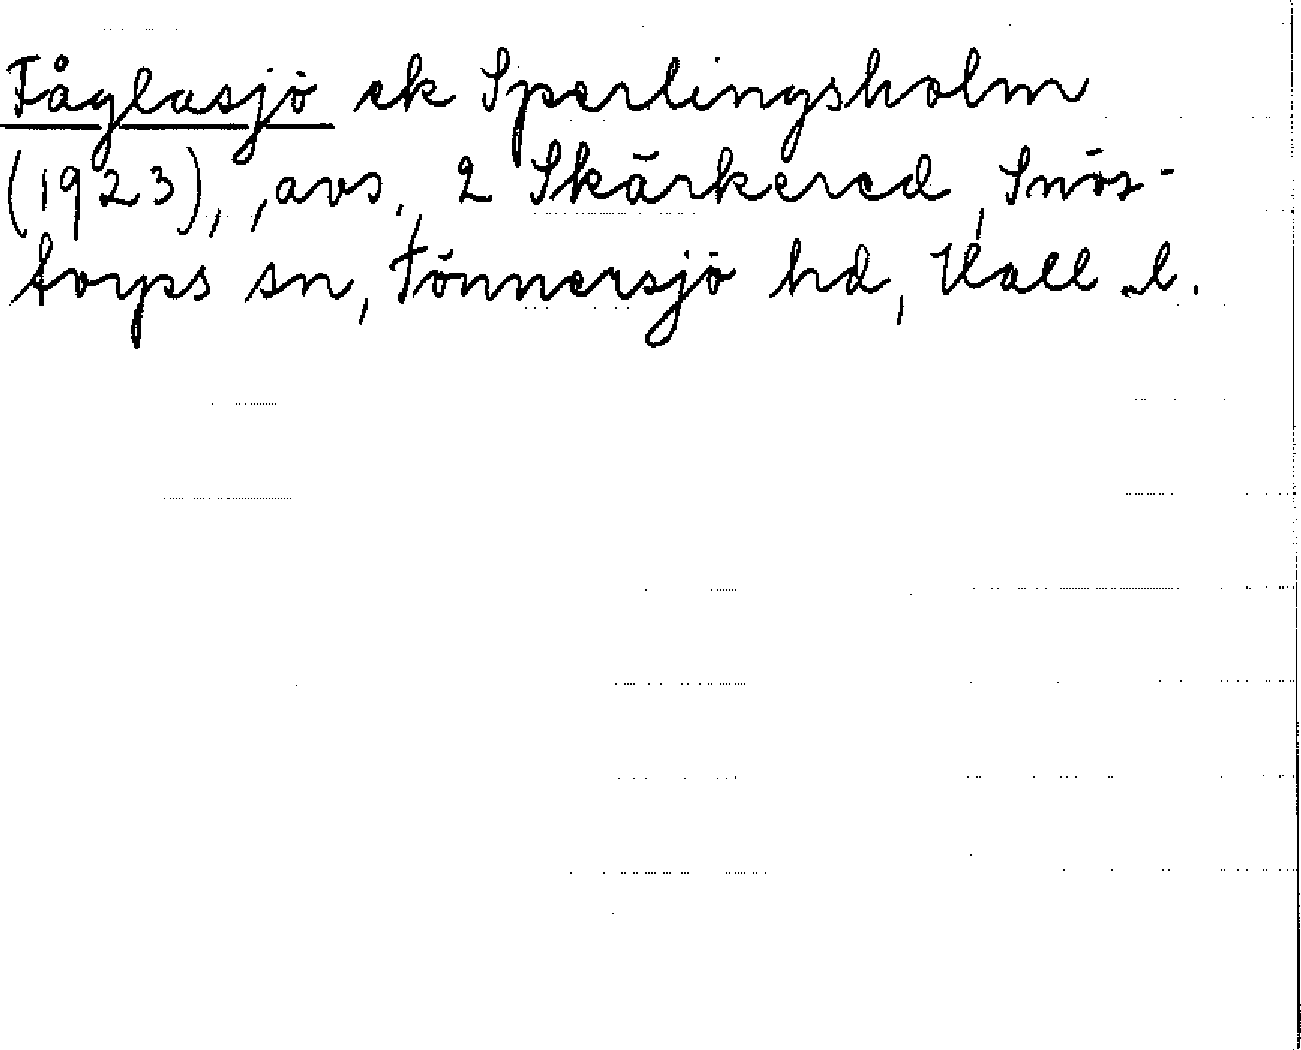 Fåglasjö ek Sperlingsholm
(1923), , avs., 2 Skärkered, Snös-
torps sn, Tönnersjö hd, Hall. l.